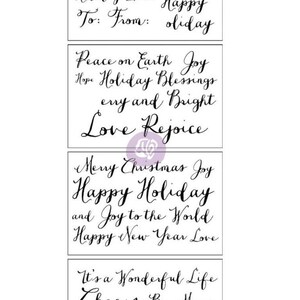 Happy
To: From: oliday
Peace on Earth Joy
Hope Holiday Blessings
erry and Bright
Love Rejoice
Merry Christmas Joy
Happy Holiday
and Joy to the World
Happy New Year Love
It's a Wonderful Life